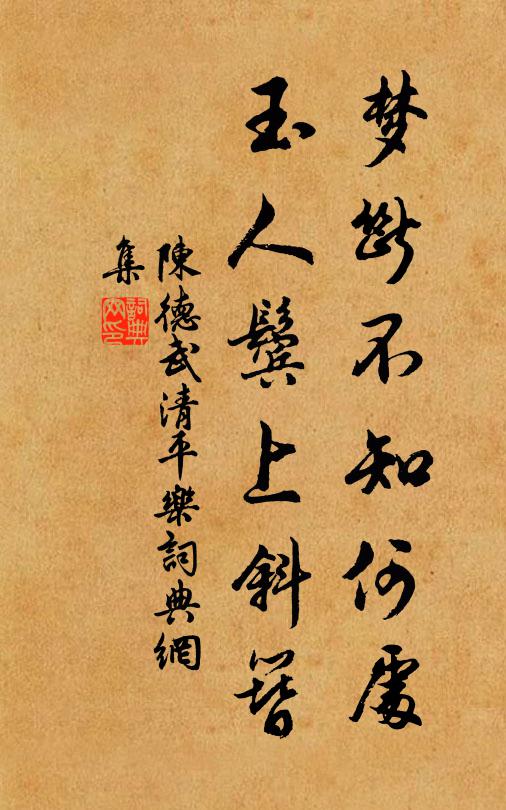 梦断不知何處
玉人鬓上斜簪
陳德武清平樂詞典網
集
詞典
网印